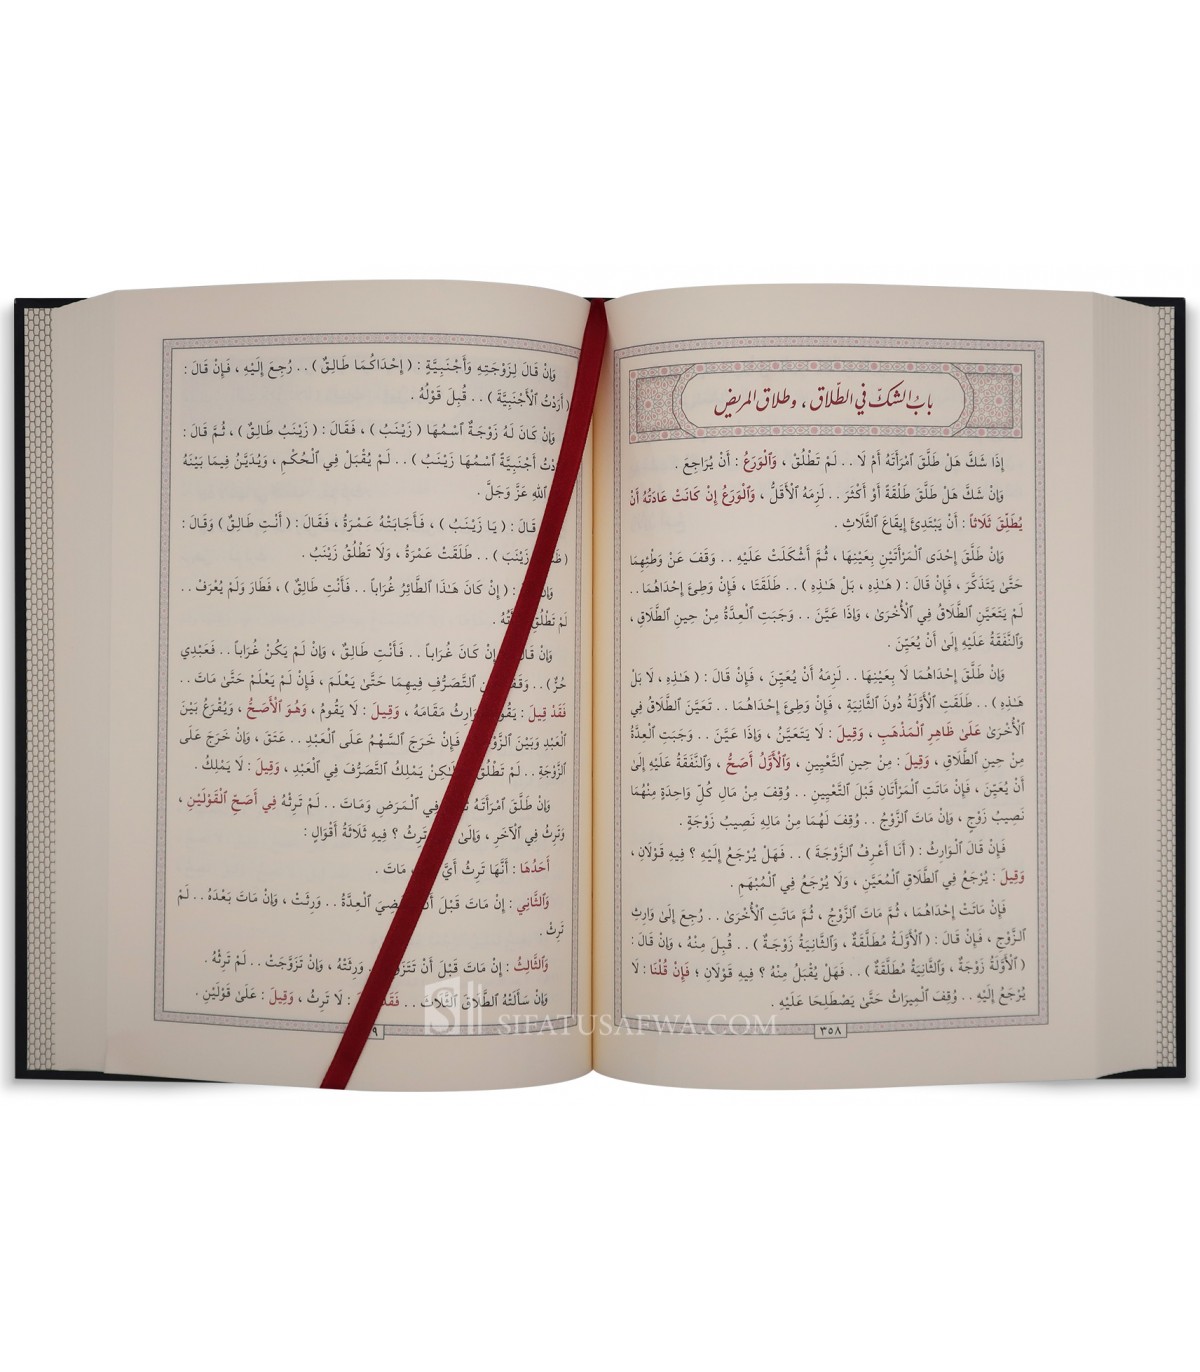 بَابُ الشَّكِّ فِي الطَّلَاقِ ، وَطَلَاقِ الْمَرِيضِ
إِذَا شَكَّ هَلْ طَلَّقَ ٱمْرَأَتَهُ أَمْ لَا . . لَمْ تَطْلُقْ ، وَٱلْوَرَعُ : أَنْ يُرَاجِعَ .
وَإِنْ شَكَّ هَلْ طَلَّقَ طَلْقَةً أَوْ أَكْثَرَ . . لَزِمَهُ ٱلْأَقَلُّ ، وَٱلْوَرَعُ إِنْ كَانَتْ عَادَتُهُ أَنْ
يُطَلِّقَ ثَلَاثاً : أَنْ يَبْتَدِئَ إِيقَاعَ ٱلثَّلَاثِ .
وَإِنْ طَلَّقَ إِحْدَى ٱلْمَرْأَتَيْنِ بِعَيْنِهَا ، ثُمَّ أَشْكَلَتْ عَلَيْهِ . . وَقَفَ عَنْ وَطْئِهِمَا
حَتَّىٰ يَتَذَكَّرَ ، فَإِنْ قَالَ : ( هَـٰذِهِ ، بَلْ هَـٰذِهِ ) . . طَلَقَتَا ، فَإِنْ وَطِئَ إِحْدَاهُمَا . .
لَمْ يَتَعَيَّنِ ٱلطَّلَاقُ فِي ٱلْأُخْرَىٰ ، وَإِذَا عَيَّنَ . . وَجَبَتِ ٱلْعِدَّةُ مِنْ حِينِ ٱلطَّلَاقِ ،
وَٱلنَّفَقَةُ عَلَيْهِ إِلَىٰ أَنْ يُعَيِّنَ .
وَإِنْ طَلَّقَ إِحْدَاهُمَا لَا بِعَيْنِهَا . . لَزِمَهُ أَنْ يُعَيِّنَ ، فَإِنْ قَالَ : ( هَـٰذِهِ ، لَا بَلْ
هَـٰذِهِ ) . . طَلَقَتِ ٱلْأَوَّلَةُ دُونَ ٱلثَّانِيَةِ ، فَإِنْ وَطِئَ إِحْدَاهُمَا . . تَعَيَّنَ ٱلطَّلَاقُ فِي
ٱلْأُخْرَىٰ عَلَىٰ ظَاهِرِ ٱلْمَذْهَبِ ، وَقِيلَ : لَا يَتَعَيَّنُ ، وَإِذَا عَيَّنَ . . وَجَبَتِ ٱلْعِدَّةُ
مِنْ حِينِ ٱلطَّلَاقِ ، وَقِيلَ : مِنْ حِينِ ٱلتَّعْيِينِ ، وَٱلْأَوَّلُ أَصَحُّ ، وَٱلنَّفَقَةُ عَلَيْهِ إِلَىٰ
أَنْ يُعَيِّنَ ، فَإِنْ مَاتَتِ ٱلْمَرْأَتَانِ قَبْلَ ٱلتَّعْيِينِ . . وُقِفَ مِنْ مَالِ كُلِّ وَاحِدَةٍ مِنْهُمَا
نَصِيبُ زَوْجٍ ، وَإِنْ مَاتَ ٱلزَّوْجُ . . وُقِفَ لَهُمَا مِنْ مَالِهِ نَصِيبُ زَوْجَةٍ .
فَإِنْ قَالَ ٱلْوَارِثُ : ( أَنَا أَعْرِفُ ٱلزَّوْجَةَ ) . . فَهَلْ يُرْجَعُ إِلَيْهِ ؟ فِيهِ قَوْلَانِ ،
وَقِيلَ : يُرْجَعُ فِي ٱلطَّلَاقِ ٱلْمُعَيَّنِ ، وَلَا يُرْجَعُ فِي ٱلْمُبْهَمِ .
فَإِنْ مَاتَتْ إِحْدَاهُمَا ، ثُمَّ مَاتَ ٱلزَّوْجُ ، ثُمَّ مَاتَتِ ٱلْأُخْرَىٰ . . رُجِعَ إِلَىٰ وَارِثِ
ٱلزَّوْجِ ، فَإِنْ قَالَ : ( ٱلْأَوَّلَةُ مُطَلَّقَةٌ ، وَٱلثَّانِيَةُ زَوْجَةٌ ) . . قُبِلَ مِنْهُ ، وَإِنْ قَالَ :
( ٱلْأَوَّلَةُ زَوْجَةٌ ، وَٱلثَّانِيَةُ مُطَلَّقَةٌ ) . . فَهَلْ يُقْبَلُ مِنْهُ ؟ فِيهِ قَوْلَانِ ؛ فَإِنْ قُلْنَا : لَا
يُرْجَعُ إِلَيْهِ . . وُقِفَ ٱلْمِيرَاثُ حَتَّىٰ يَصْطَلِحَا عَلَيْهِ .
٣٥٨
وَإِنْ قَالَ لِزَوْجَتِهِ وَأَجْنَبِيَّةٍ : ( إِحْدَاكُمَا طَالِقٌ ) . . رُجِعَ إِلَيْهِ ، فَإِنْ قَالَ :
( أَرَدْتُ ٱلْأَجْنَبِيَّةَ ) . . قُبِلَ قَوْلُهُ .
وَإِنْ كَانَ لَهُ زَوْجَةٌ ٱسْمُهَا ( زَيْنَبُ ) ، فَقَالَ : ( زَيْنَبُ طَالِقٌ ) ، ثُمَّ قَالَ :
أَجْنَبِيَّةً ٱسْمُهَا زَيْنَبُ ) . . لَمْ يُقْبَلْ فِي ٱلْحُكْمِ ، وَيُدَيَّنُ فِيمَا بَيْنَهُ
ٱللهِ عَزَّ وَجَلَّ .
قَالَ : ( يَا زَيْنَبُ ) ، فَأَجَابَتْهُ عَمْرَةُ ، فَقَالَ : ( أَنْتِ طَالِقٌ ) وَقَالَ :
زَيْنَبَ ) . . طَلَقَتْ عَمْرَةُ ، وَلَا تَطْلُقُ زَيْنَبُ .
وَإِنْ : ( إِنْ كَانَ هَـٰذَا ٱلطَّائِرُ غُرَاباً . . فَأَنْتِ طَالِقٌ ) ، فَطَارَ وَلَمْ يُعْرَفْ . .
لَمْ تَطْلُقِ
وَإِنْ قَالَ إِنْ كَانَ غُرَاباً . . فَأَنْتِ طَالِقٌ ، وَإِنْ لَمْ يَكُنْ غُرَاباً . . فَعَبْدِي
حُرٌّ ) . . ٱلتَّصَرُّفِ فِيهِمَا حَتَّىٰ يَعْلَمَ ، فَإِنْ لَمْ يَعْلَمْ حَتَّىٰ مَاتَ . .
فَقَدْ قِيلَ : يَقُومُ مَقَامَهُ ، وَقِيلَ : لَا يَقُومُ ، وَهُوَ ٱلْأَصَحُّ ، وَيُقْرَعُ بَيْنَ
ٱلْعَبْدِ وَبَيْنَ فَإِنْ خَرَجَ ٱلسَّهْمُ عَلَى ٱلْعَبْدِ . . عَتَقَ ، وَإِنْ خَرَجَ عَلَى
ٱلزَّوْجَةِ . . لَمْ تَطْلُقْ يَمْلِكُ ٱلتَّصَرُّفَ فِي ٱلْعَبْدِ ، وَقِيلَ : لَا يَمْلِكُ .
وَإِنْ طَلَّقَ ٱمْرَأَتَهُ فِي ٱلْمَرَضِ وَمَاتَ . . لَمْ تَرِثْهُ فِي أَصَحِّ ٱلْقَوْلَيْنِ ،
وَتَرِثُ فِي ٱلْآخَرِ ، وَإِلَىٰ تَرِثُ ؟ فِيهِ ثَلَاثَةُ أَقْوَالٍ :
أَحَدُهَا : أَنَّهَا تَرِثُ أَيَّ مَاتَ .
وَٱلثَّانِي : إِنْ مَاتَ قَبْلَ ٱلْعِدَّةُ . . وَرِثَتْ ، وَإِنْ مَاتَ بَعْدَهُ . . لَمْ
تَرِثْ .
وَٱلثَّالِثُ : إِنْ مَاتَ قَبْلَ أَنْ وَرِثَتْهُ ، وَإِنْ تَزَوَّجَتْ . . لَمْ تَرِثْهُ .
وَإِنْ سَأَلَتْهُ ٱلطَّلَاقَ ٱلثَّلَاثَ . . لَا تَرِثُ ، وَقِيلَ : عَلَىٰ قَوْلَيْنِ .
٩
SIFATUSAFWA.COM